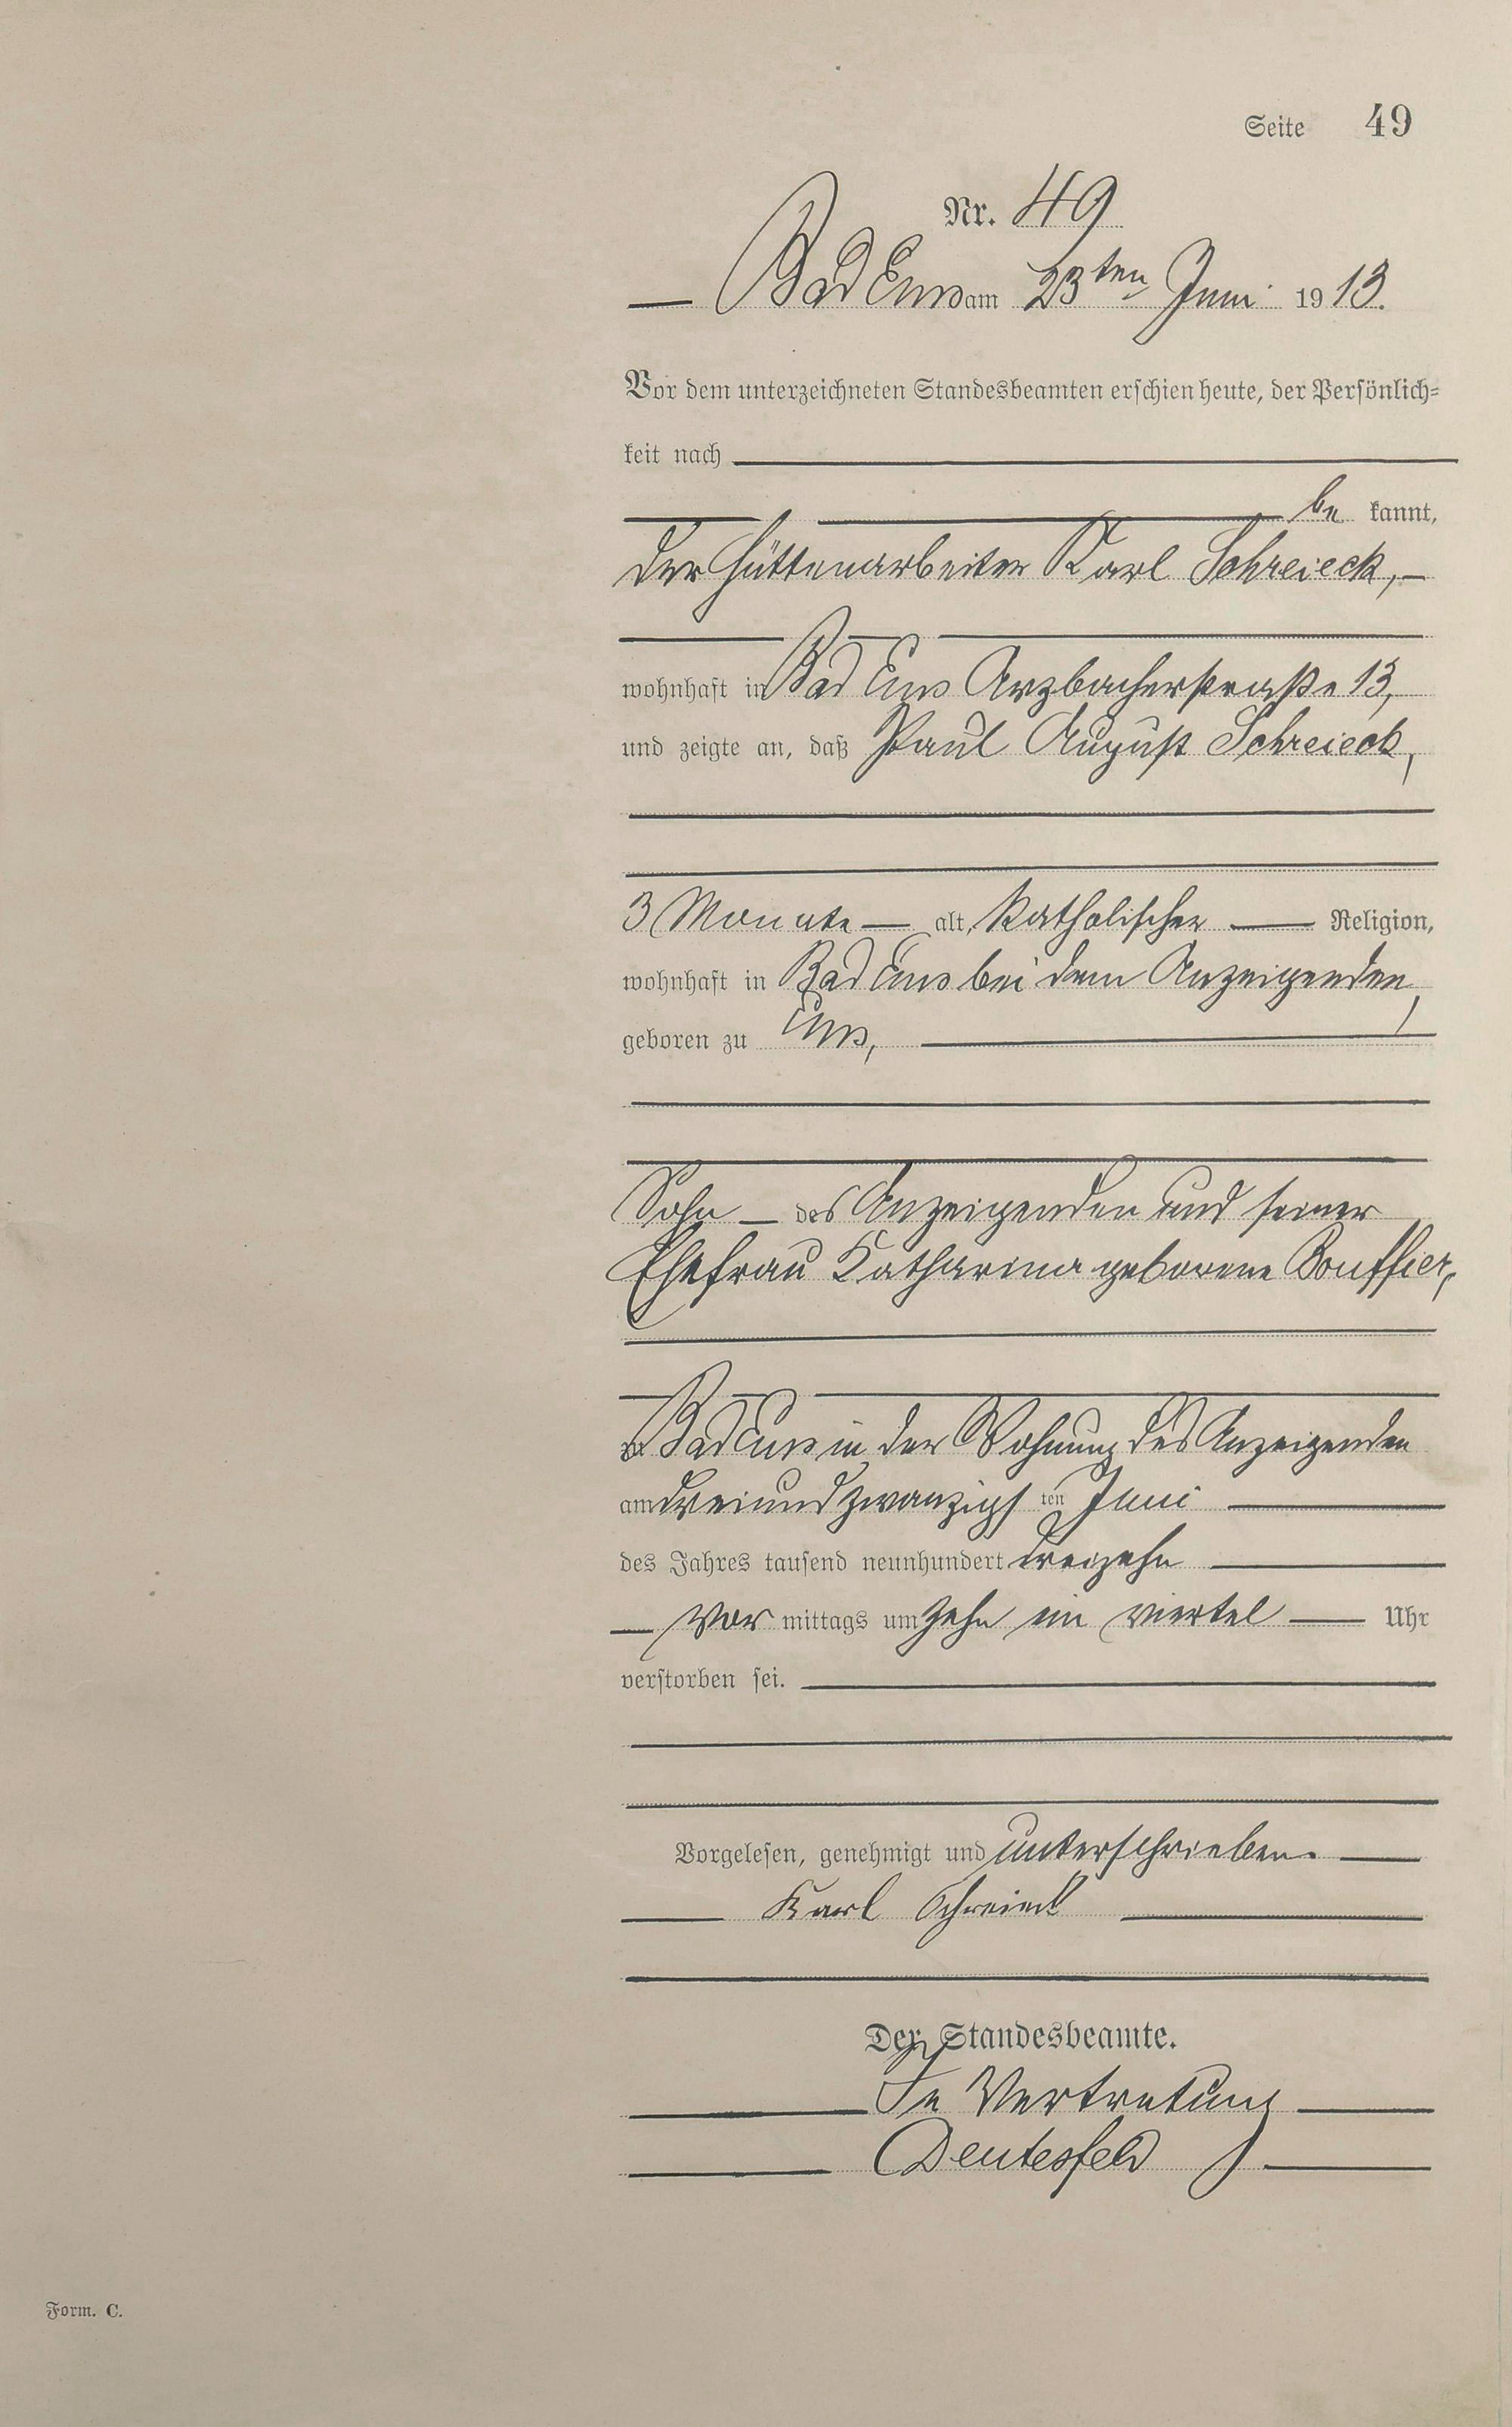 Seite 49
Nr. 49
Bad Ems am 23ten Juni 1913.
Vor dem unterzeichneten Standesbeamten erschien heute, der Persönlich-
keit nach
be kannt,
der Hüttenarbeiter Karl Schreieck,
wohnhaft in Bad Ems Arzbacherstraße 13,
und zeigte an, daß Paul August Schreieck,
3 Monate alt, katholischer Religion,
wohnhaft in Bad Ems bei dem Anzeigenden,
geboren zu Ems,
Sohn des Anzeigenden und seiner
Ehefrau Katharina geborene Bouffier,
zu Bad Ems in der Wohnung des Anzeigenden
am dreiundzwanzigsten Juni
des Jahres tausend neunhundert dreizehn
Vor mittags um zehn ein viertel Uhr
verstorben sei.
Vorgelesen, genehmigt und unterschrieben.
Karl Schreieck
Der Standesbeamte.
In Vertretung
Deutesfeld
Form. C.